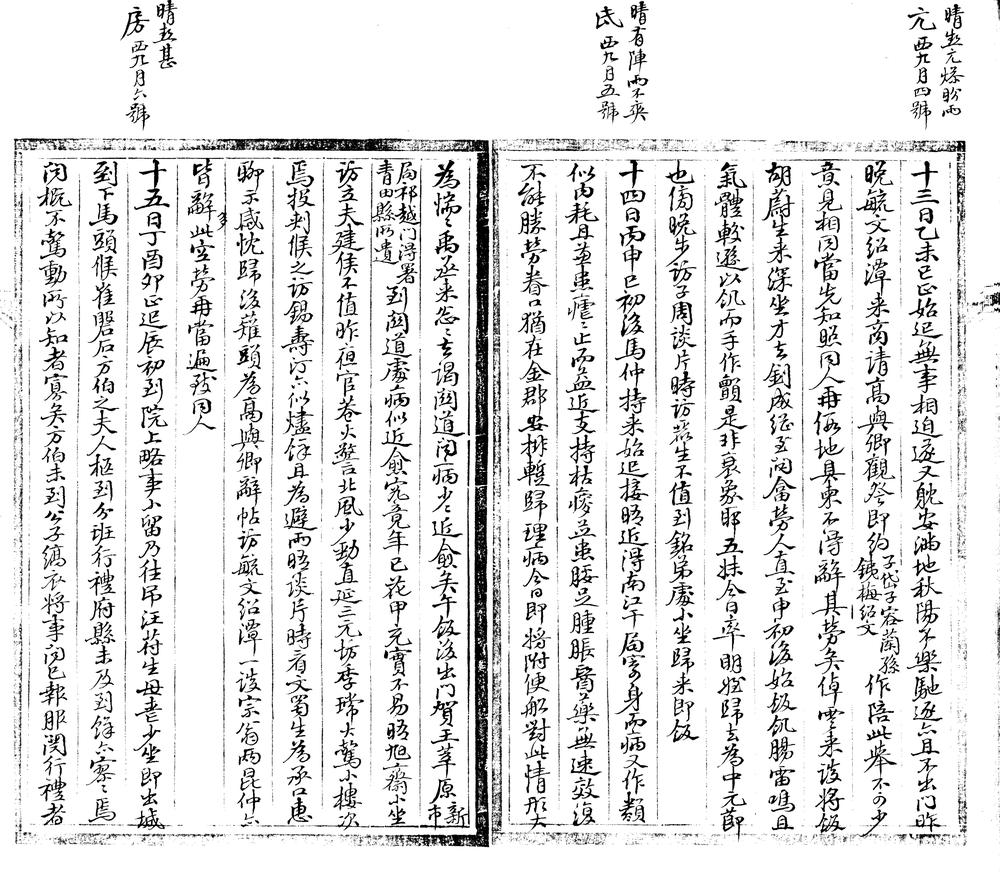 晴熱亢燥盼雨
亢 西九月四號
十三日乙未巳正始起無事相迫遂又躭安滿地秋陽不樂馳逐亦且不出門昨
晚毓文紹潭來商請高與卿觀祭即約子岱子容蘭孫
銕梅紹文作陪此舉不可少
意見相同當先知照同人再假地具柬不得辭其勞矣倬雲來談將飯
胡蔚生來深坐才去劍成繼至問畣勞人直至申初後始飯飢腸雷鳴且
氣體較遜以飢而手作顫是非衰象耶五妹今日率明姪歸去為中元節
也傍晚步訪子周談片時訪蕓生不值到銘弟處小坐歸來即飯
晴有陣雨不爽
氐 西九月五號
十四日丙申巳初後馬仲持來始起接晤近得南江干局寄身而病又作類
似內耗且益患瘧瘧止而益近支持枯瘦並患腰足腫脹醫藥無速效復
不能勝勞眷口猶在金郡安排暫歸理病今日即將附便船對此情形大
為惴惴禹丞來怱怱去謁關道問病少少近愈矣午飯後出門賀王莘原新
市
局祁越門得署
青田縣所遺到關道處病似近愈究竟年已花甲充實不易晤旭齋小坐
訪立夫建侯不值昨夜官巷火警北風少勁直延三元坊季瑺大驚小樓次
焉投刺候之訪錫壽汀亦似燼餘且為避雨晤談片時看文蜀生為承口惠
聊示感忱歸後薙頭為高與卿辭帖訪毓文紹潭一談宗翁兩昆仲亦
皆辭此宴勞再當遍致同人
晴熱甚
房 西九月六號
十五日丁酉卯正起辰初到院上略事小留乃往弔汪苻生母喪少坐即出城
到下馬頭候崔磬石方伯之夫人柩到分班行禮府縣未及到餘亦寥寥焉
問概不驚動所以知者寡矣方伯未到公子縞衣將事問已報服闋行禮者